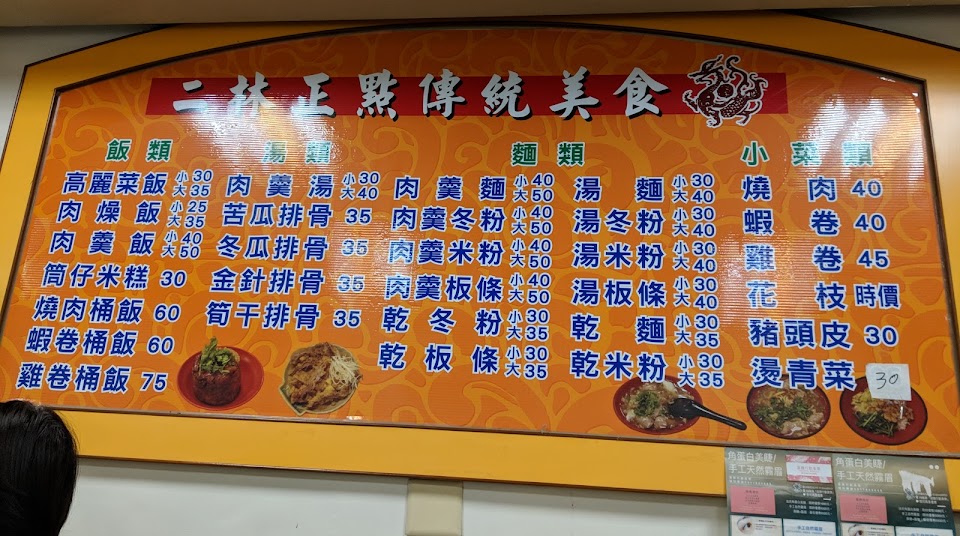 二林正點傳統美食
飯類
高麗菜飯 小30 大35
肉燥飯 小25 大35
肉羹飯 小40 大50
筒仔米糕 30
燒肉桶飯 60
蝦卷桶飯 60
雞卷桶飯 75
湯類
肉羹湯 小30 大40
苦瓜排骨 35
冬瓜排骨 35
金針排骨 35
筍干排骨 35
麵類
肉羹麵 小40 大50
肉羹冬粉 小40 大50
肉羹米粉 小40 大50
肉羹板條 小40 大50
乾冬粉 小30 大35
乾板條 小30 大35
湯麵 小30 大40
湯冬粉 小30 大40
湯米粉 小30 大40
湯板條 小30 大40
乾麵 小30 大35
乾米粉 小30 大35
小菜類
燒肉 40
蝦卷 40
雞卷 45
花枝 時價
豬頭皮 30
燙青菜 30
角蛋白美睫/
手工天然霧眉
角蛋白美睫/
手工天然霧眉